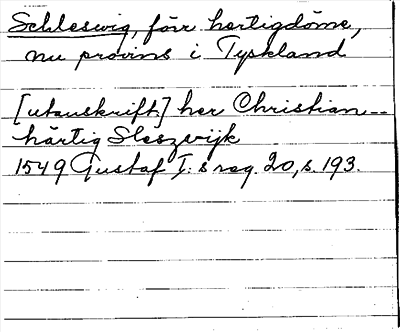 Schleswig, förr hertigdöme,
nu provins i Tyskland
[utanskrift:] her Christian --
härtig Sleszvijk
1549 Gustaf I:s reg. 20, s. 193.